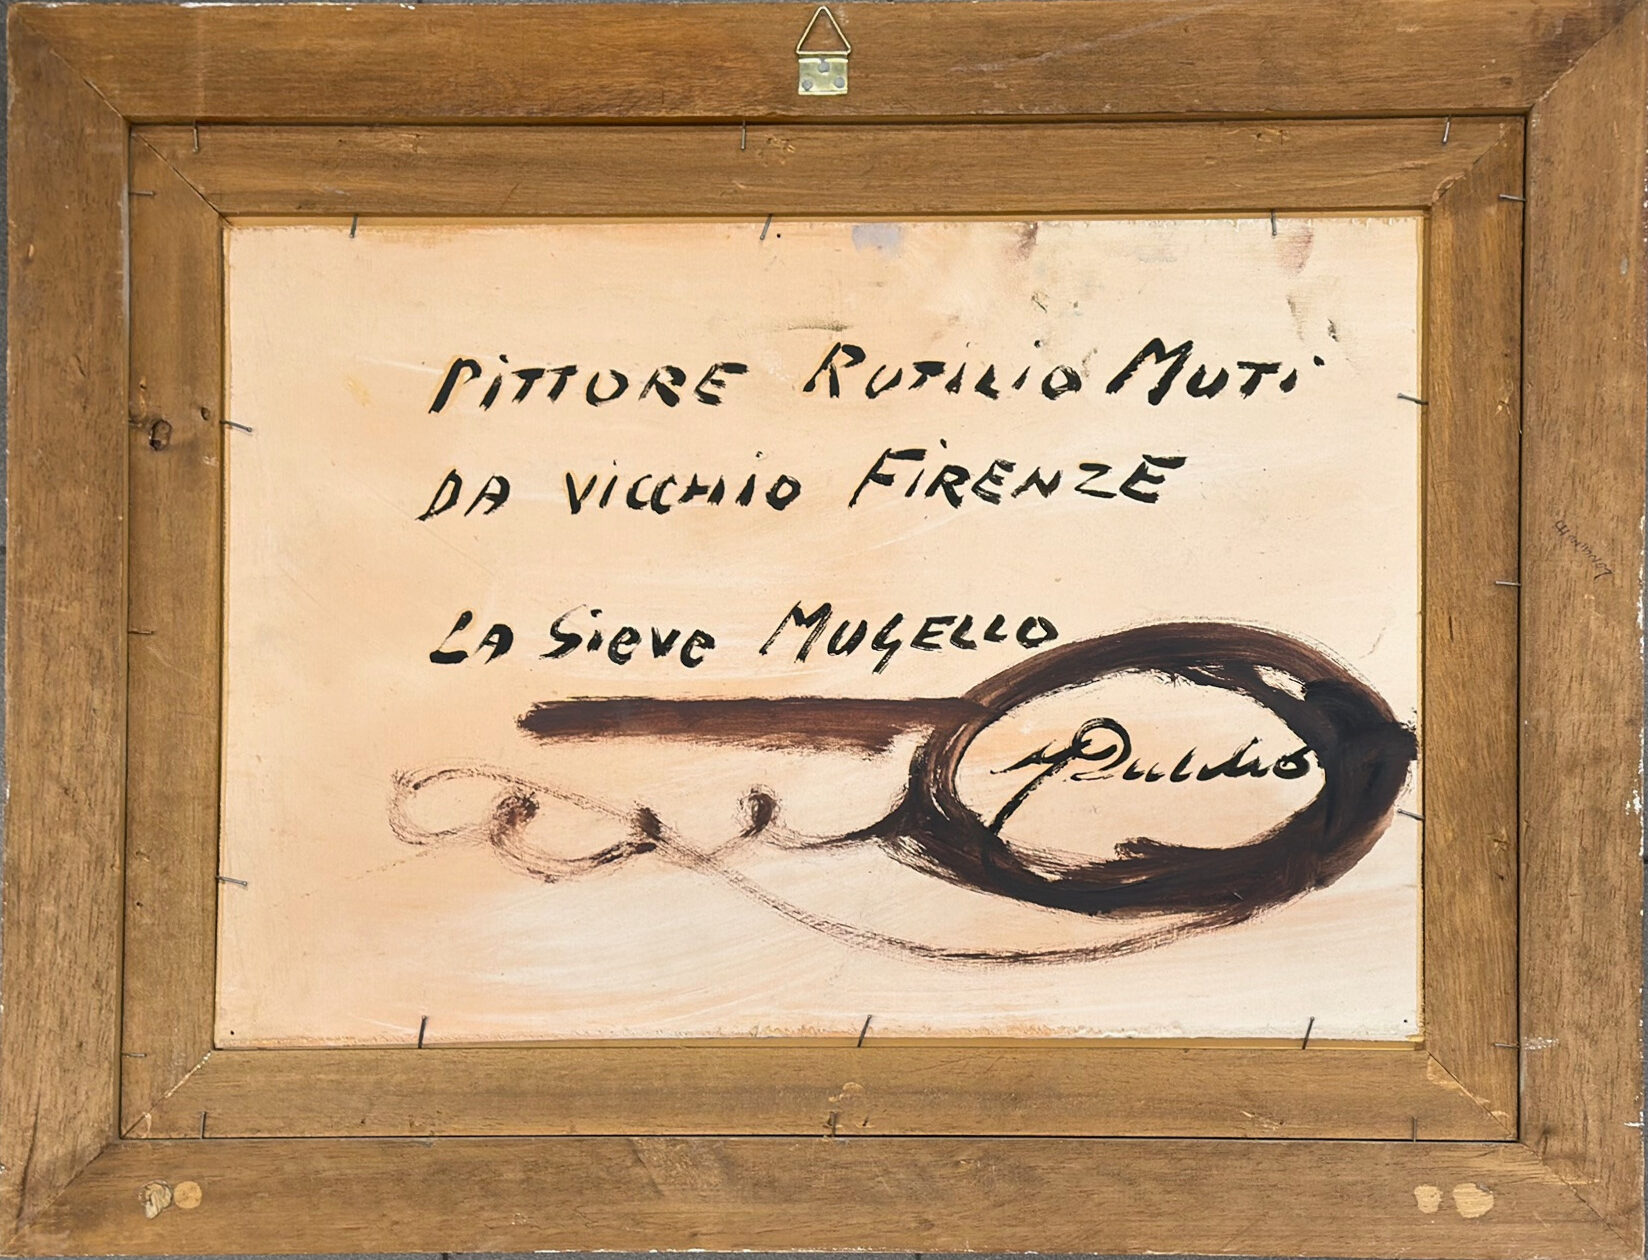 PiTTORE RUTiLiO MUTi
DA ViCCHiO FiRENZE
LA Sieve MUGELLO